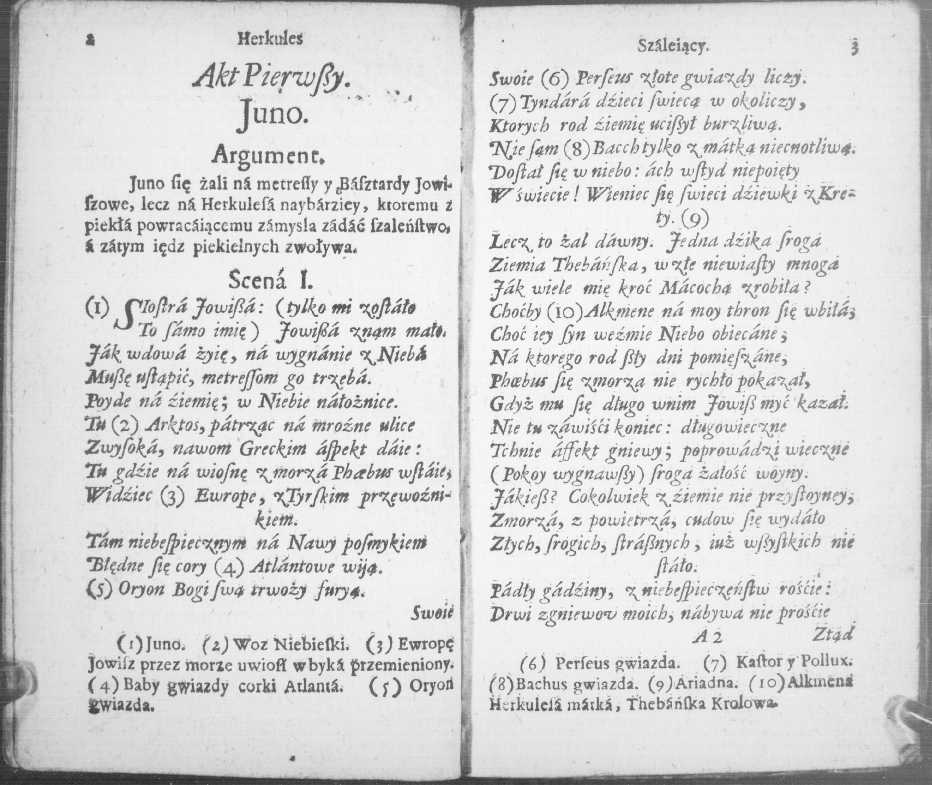 2 Herkules
Akt Pierwßy.
Juno.
Argument.
Juno ſię żali ná metreſſy y Báſztardy Jowi-
ſzowe, lecz ná Herkuleſá naybárziey, ktoremu z
piekłá powracáiącemu zámyśla zádáć ſzaleńſtwo,
á zátym iędz piekielnych zwoływa.
Scená I.
(1) SIoſtrá Jowißá: (tylko mi zoſtáło
To ſámo imię) Jowißá znam máło.
Ják wdowá żyię, ná wygnánie z Niebá
Mußę uſtąpić, metreſſom go trzebá.
Poyde ná źiemię; w Niebie náłożnice.
Tu (2) Arktos, pátrząc ná mroźne ulice
Zwyſoká, nawom Greckim áſpekt dáie:
Tu gdźie ná wioſnę z morzá Phæbus wſtáie,
Widźiec (3) Ewrope, zTyrſkim przewoźni-
kiem.
Tám niebeſpiecznym ná Nawy poſmykiem
Błędne ſię cory (4) Atlántowe wiją.
(5) Oryon Bogi ſwą trwoży furyą.
Swoie
(1) Juno. (2) Woz Niebieſki. (3) Ewropę
Jowiſz przez morze uwioſſ w byká przemieniony.
(4) Baby gwiazdy corki Atlantá. (5) Oryon
gwiazda.
Száleiący. 3
Swoie (6) Perſeus złote gwiazdy liczy.
(7) Tyndárá dźieci ſwiecą w okoliczy,
Ktorych rod źiemię ucißył burzliwą.
Nie ſąm (8) Bacch tylko z mátką niecnotliwą.
Doſtał ſię w niebo: ách wſtyd niepoięty
W świecie! Wieniec ſię ſwieci dźiewki z Kre-
ty. (9)
Lecz to żal dáwny. Jedna dźika ſroga
Ziemia Thebáńſka, w złe niewiaſty mnoga
Ják wiele mię kroć Mácochą zrobiła?
Choćby (10) Alkmene ná moy thron ſię wbiłá;
Choć iey ſyn weźmie Niebo obiecáne;
Ná ktorego rod ßły dni pomięſzáne,
Phæbus ſię z morza nie rychło pokazał,
Gdyż mu ſię długo wnim Jowiß myć kazał.
Nie tu záwiśći koniec: długowieczne
Tchnie áffekt gniewy; poprowádzi wieczne
(Pokoy wygnawßy) ſroga żałość woyny.
Jákieß? Cokolwiek z źiemie nie przyſtoyney,
Z morzá, z powietrzá, cudow ſię wydáło
Złych, ſrogich, ſtráßnych, iuż wßyſtkich nie
ſtáło.
Pádły gádźiny, z niebeſpieczeńſtw rośćie:
Drwi zgniewow moich, nábywa nie prośćie
A 2 Ztąd
(6) Perſeus gwiazda. (7) Kaſtor y Pollux.
(8) Bachus gwiazda. (9) Ariadna. (10) Alkmena
Herkuleſá mátká, Thebáńſka Krolowa.